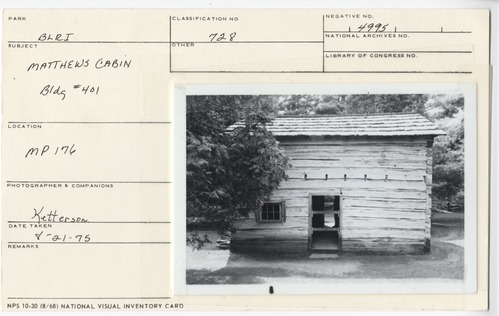 PARK
BLRI
CLASSIFICATION NO
728
NEGATIVE NO.
4995
SUBJECT
MATTHEWS CABIN
Bldg #401
OTHER
NATIONAL ARCHIVES NO.
LIBRARY OF CONGRESS NO.
LOCATION
MP 176
PHOTOGRAPHER & COMPANIONS
Ketterson
DATE TAKEN
8-21-75
REMARKS
NPS 10-30 (8/68) NATIONAL VISUAL INVENTORY CARD